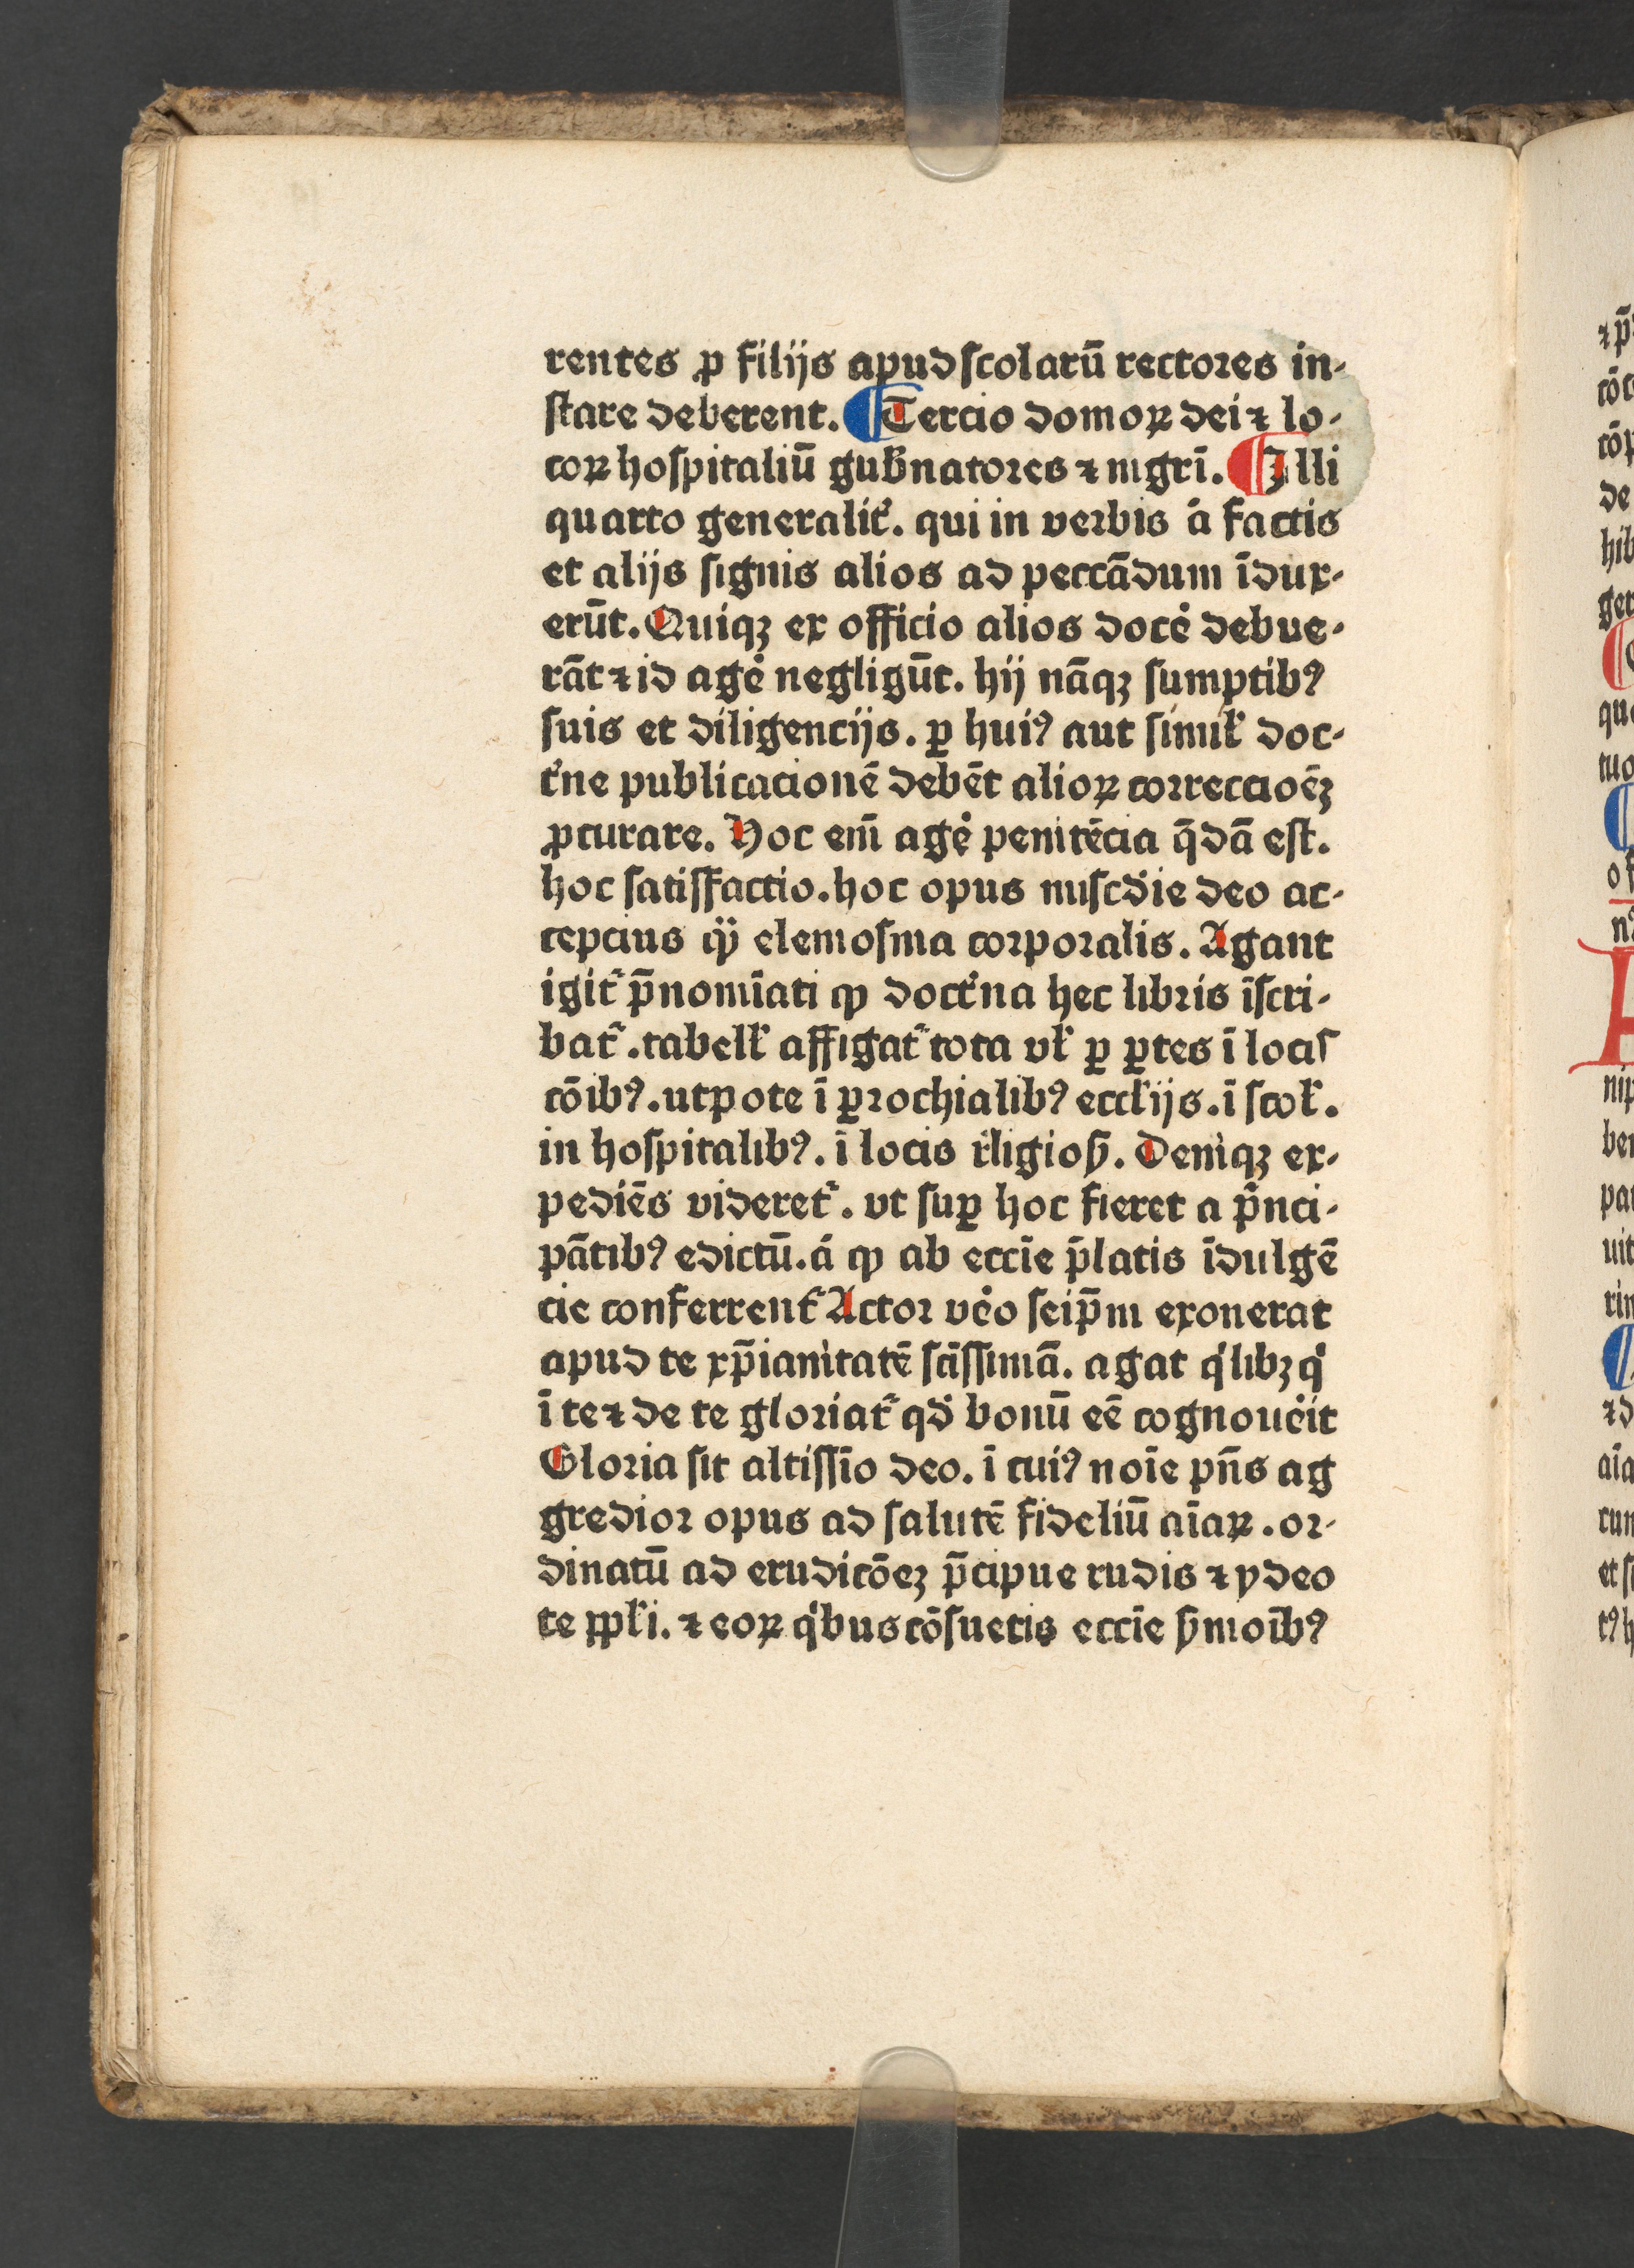 rentes ꝓ filijs apud ſcolarū rectores in-
ſtare deberent. ¶ Tercio domoꝝ dei ⁊ lo-
coꝝ hoſpitaliū gub̄natores ⁊ mgr̄i. ¶ Illi
quarto generalit̉. qui in verbis a̍ factis
et alijs ſignis alios ad peccādum īdux-
erūt. Quiqꝫ ex officio alios docē̍ debue-
rāt ⁊ id age̍ negligūt. hij nāqꝫ ſumptibꝰ
ſuis et diligencijs. ꝑ huiꝰ aut ſimilꝭ doc-
tͥne publicacionē debēt alioꝝ correccioēꝫ
ꝓcurare. Hoc em̄ age̍ penitēcia q̄dā eſt.
hoc ſatisfactio. hoc opus miſcd̍ie deo ac-
cepcius qͣ̄ elemoſina corporalis. Agant
igit᷑ p̄nomīati ꝙ doctͥna hec libris īſcri-
bat᷑. tabellꝭ affigat᷑ tota vl̛ ꝑ ꝑtes ī locis
cōibꝰ. utpote ī ꝑrochialibꝰ eccl̛ijs. ī ſcol̛.
in hoſpitalibꝰ. ī locis r̍ligioſꝭ. Deniqꝫ ex-
pediēs videret᷑. vt ſuꝑ hoc fieret a pͥnci-
pātibꝰ edictū. a̍ ꝙ ab eccīe p̄latis īdulgē
cie conferrent᷑ Actor ve̍o ſeip̄m exonerat
apud te xp̄ianitatē ſcīſſimā. agat qͥlibꝫ qͥ
ī te ⁊ de te gloriat᷑ qd̍ bonū eē cognoue̍it
Gloria ſit altiſſīo deo. ī cuiꝰ noīe pn̄s ag
gredior opus ad ſalutē fideliū aīaꝝ. or-
dinatū ad erudicōeꝫ p̄cipue rudis ⁊ ydeo
te ꝓpl̛i. ⁊ eoꝝ qͥbus cōſuetis eccīe ſꝭmoībꝰ